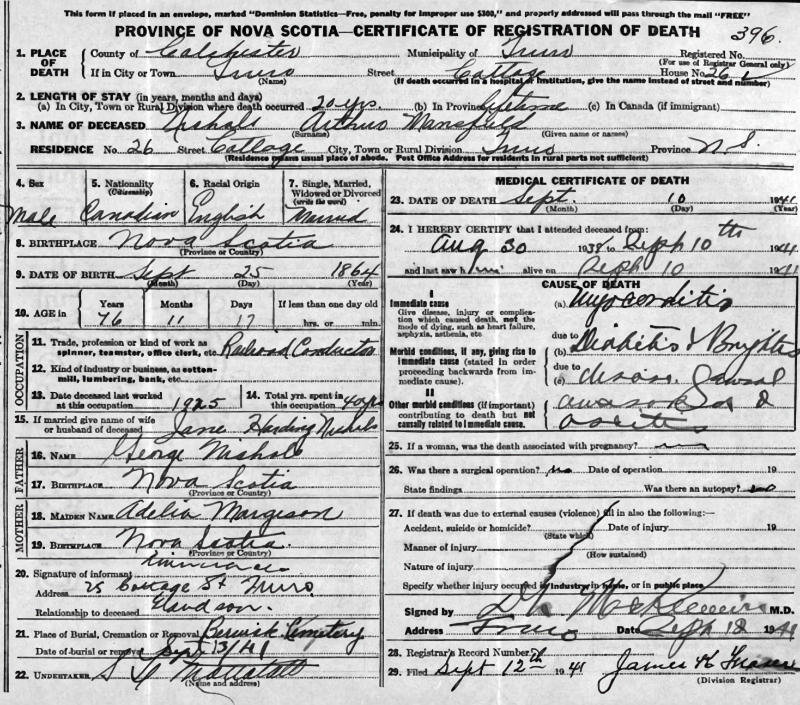 This form if placed in an envelope, marked "Dominion Statistics—Free, penalty for improper use $300," and property addressed will pass through the mail "FREE"
PROVINCE OF NOVA SCOTIA—CERTIFICATE OF REGISTRATION OF DEATH 396.
1. PLACE OF DEATH County of Colchester Municipality of Truro Registered No.
(For use of Registrar General only)
If in City or Town Truro Street Cottage House No. 26
(Name) (If death occurred in a hospital or institution, give the name instead of street and number)
2. LENGTH OF STAY (in years, months and days)
(a) In City, Town or Rural Division where death occurred 20 yrs. (b) In Province Lifetime (c) In Canada (if immigrant)
3. NAME OF DECEASED Nichols Arthur Mansfield
(Surname) (Given name or names)
RESIDENCE No. 26 Street Cottage City, Town or Rural Division Truro Province N.S.
(Residence means usual place of abode. Post Office Address for residents in rural parts not sufficient)
4. Sex Male
5. Nationality (Citizenship) Canadian
6. Racial Origin English
7. Single, Married, Widowed or Divorced (write the word) Married
8. BIRTHPLACE Nova Scotia
(Province or Country)
9. DATE OF BIRTH Sept 25 1864
(Month) (Day) (Year)
10. AGE in Years Months Days If less than one day old
76 11 17 hrs. or min.
OCCUPATION
11. Trade, profession or kind of work as spinner, teamster, office clerk, etc. Railroad Conductor
12. Kind of industry or business, as cotton-mill, lumbering, bank, etc.
13. Date deceased last worked at this occupation 1925
14. Total yrs. spent in this occupation 40 yrs
15. If married give name of wife or husband of deceased Jane Harding Nichols
FATHER
16. NAME George Nichols
17. BIRTHPLACE Nova Scotia
(Province or Country)
MOTHER
18. MAIDEN NAME Adelia Margeson
19. BIRTHPLACE Nova Scotia.
(Province or Country)
20. Signature of informant
Address 25 Cottage St Truro
Relationship to deceased
21. Place of Burial, Cremation or Removal Berwick Cemetery
Date of burial or removal Sept 13/41
22. UNDERTAKER
(Name and address)
MEDICAL CERTIFICATE OF DEATH
23. DATE OF DEATH Sept. 10 1941
(Month) (Day) (Year)
24. I HEREBY CERTIFY that I attended deceased from:
Aug 30 1938 to Sept 10th 1941
and last saw him alive on Sept 10 1941
CAUSE OF DEATH
I
Immediate cause
Give disease, injury or complication which caused death, not the mode of dying, such as heart failure, asphyxia, asthenia, etc.
(a) Myocarditis
due to
Morbid conditions, if any, giving rise to immediate cause (stated in order proceeding backwards from immediate cause).
(b) & Brights
due to
(c)
II
Other morbid conditions (if important) contributing to death but not causally related to immediate cause.
25. If a woman, was the death associated with pregnancy?
26. Was there a surgical operation? no Date of operation 19
State findings Was there an autopsy? no
27. If death was due to external causes (violence) fill in also the following:—
Accident, suicide or homicide? Date of injury 19
(State which)
Manner of injury
(How sustained)
Nature of injury
Specify whether injury occurred in industry, in home, or in public place
Signed by M.D.
Address Truro Date Sept 12 1941
28. Registrar's Record Number
29. Filed Sept 12th 1941 James H Fraser
(Division Registrar)